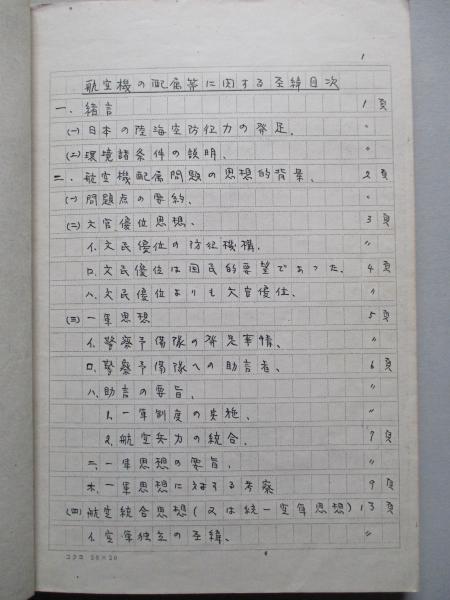 1
航空機の配属等に関する経緯目次
一. 緒言 1頁
(一)日本の陸海空防衛力の発足. 〃
(二)環境諸条件の説明. 〃
二. 航空機配属問題の思想的背景. 2頁
(一)問題点の要約. 〃
(二)文官優位思想. 3頁
イ.文民優位の防衛機構. 〃
ロ.文民優位は国民的要望であった. 4頁
ハ.文民優位よりも文官優位. 〃
(三)一軍思想 5頁
イ.警察予備隊の発足事情. 〃
ロ.警察予備隊への助言者. 6頁
ハ.助言の要旨. 〃
1.一軍制度の実施. 〃
2.航空兵力の統合. 7頁
ニ.一軍思想の要旨. 〃
ホ.一軍思想に対する考察 9頁
(四)航空統合思想(又は統一空軍思想) 13頁
イ.空軍独立の経緯. 〃
コクヨ 20×20